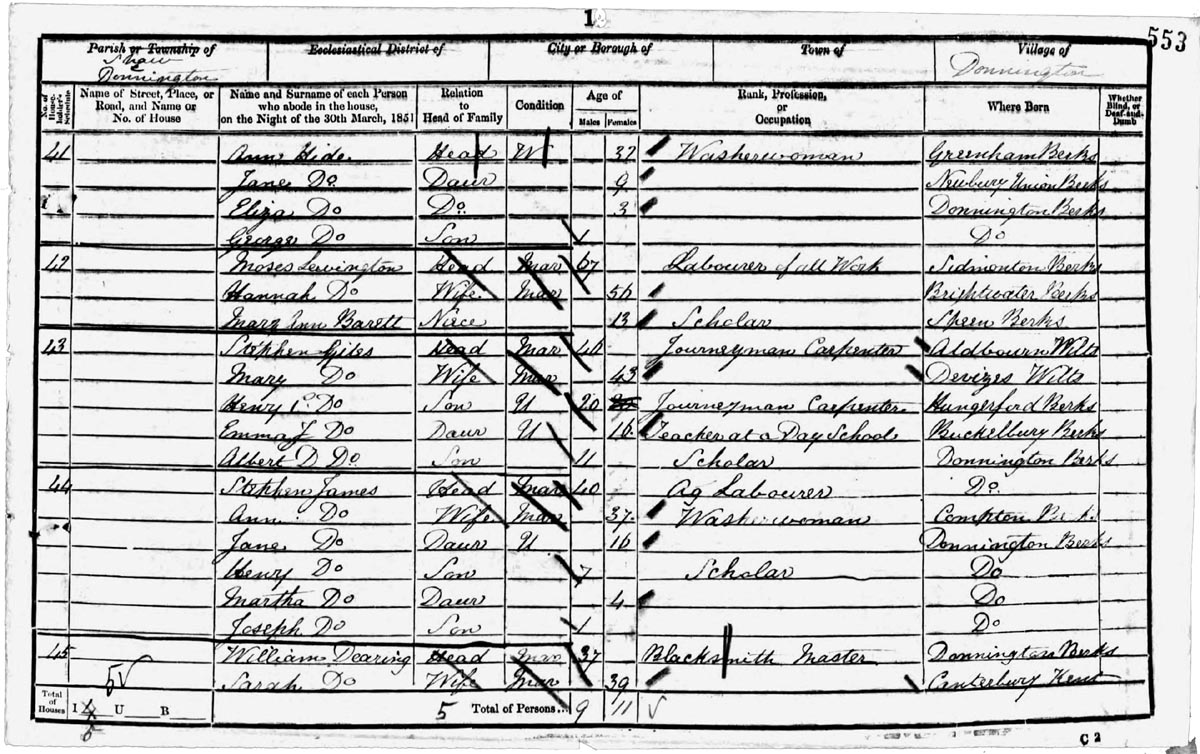 1
553
Parish or Township of
Shaw
Donnington
Ecclesiastical District of
City or Borough of
Town of
Village of
Donnington
No. of House-holder's Schedule
Name of Street, Place, or Road, and Name or No. of House
Name and Surname of each Person who abode in the house, on the Night of the 30th March, 1851
Relation to Head of Family
Condition
Age of
Males Females
Rank, Profession, or Occupation
Where Born
Whether Blind, or Deaf-and-Dumb
41 Ann Hide Head W 37 Washerwoman Greenham Berks
Jane Do Daur 9 Newbury Union Berks
Eliza Do Do 3 Donnington Berks
George Do Son 1 Do
42 Moses Lewington Head Mar 67 Labourer of all Work Sidmonton Berks
Hannah Do Wife Mar 56 Brightwater Berks
Mary Ann Barett Niece 13 Scholar Speen Berks
43 Stephen Giles Head Mar 46 Journeyman Carpenter Aldbourn Wilts
Mary Do Wife Mar 43 Devizes Wilts
Henry Do Son U 20 Journeyman Carpenter Hungerford Berks
Emma J Do Daur U 16 Teacher at a Day School Buckelbury Berks
Albert D Do Son 11 Scholar Donnington Berks
44 Stephen James Head Mar 40 Ag Labourer Do
Ann Do Wife Mar 37 Washerwoman Compton
Jane Do Daur U 16 Donnington Berks
Henry Do Son 7 Scholar Do
Martha Do Daur 4 Do
Joseph Do Son 1 Do
45 William Dearing Head Mar 37 Blacksmith Master Donnington Berks
Sarah Do Wife Mar 39 Canterbury Kent
5
Total of Houses I 5 U B 5 Total of Persons... 9 11
C 2